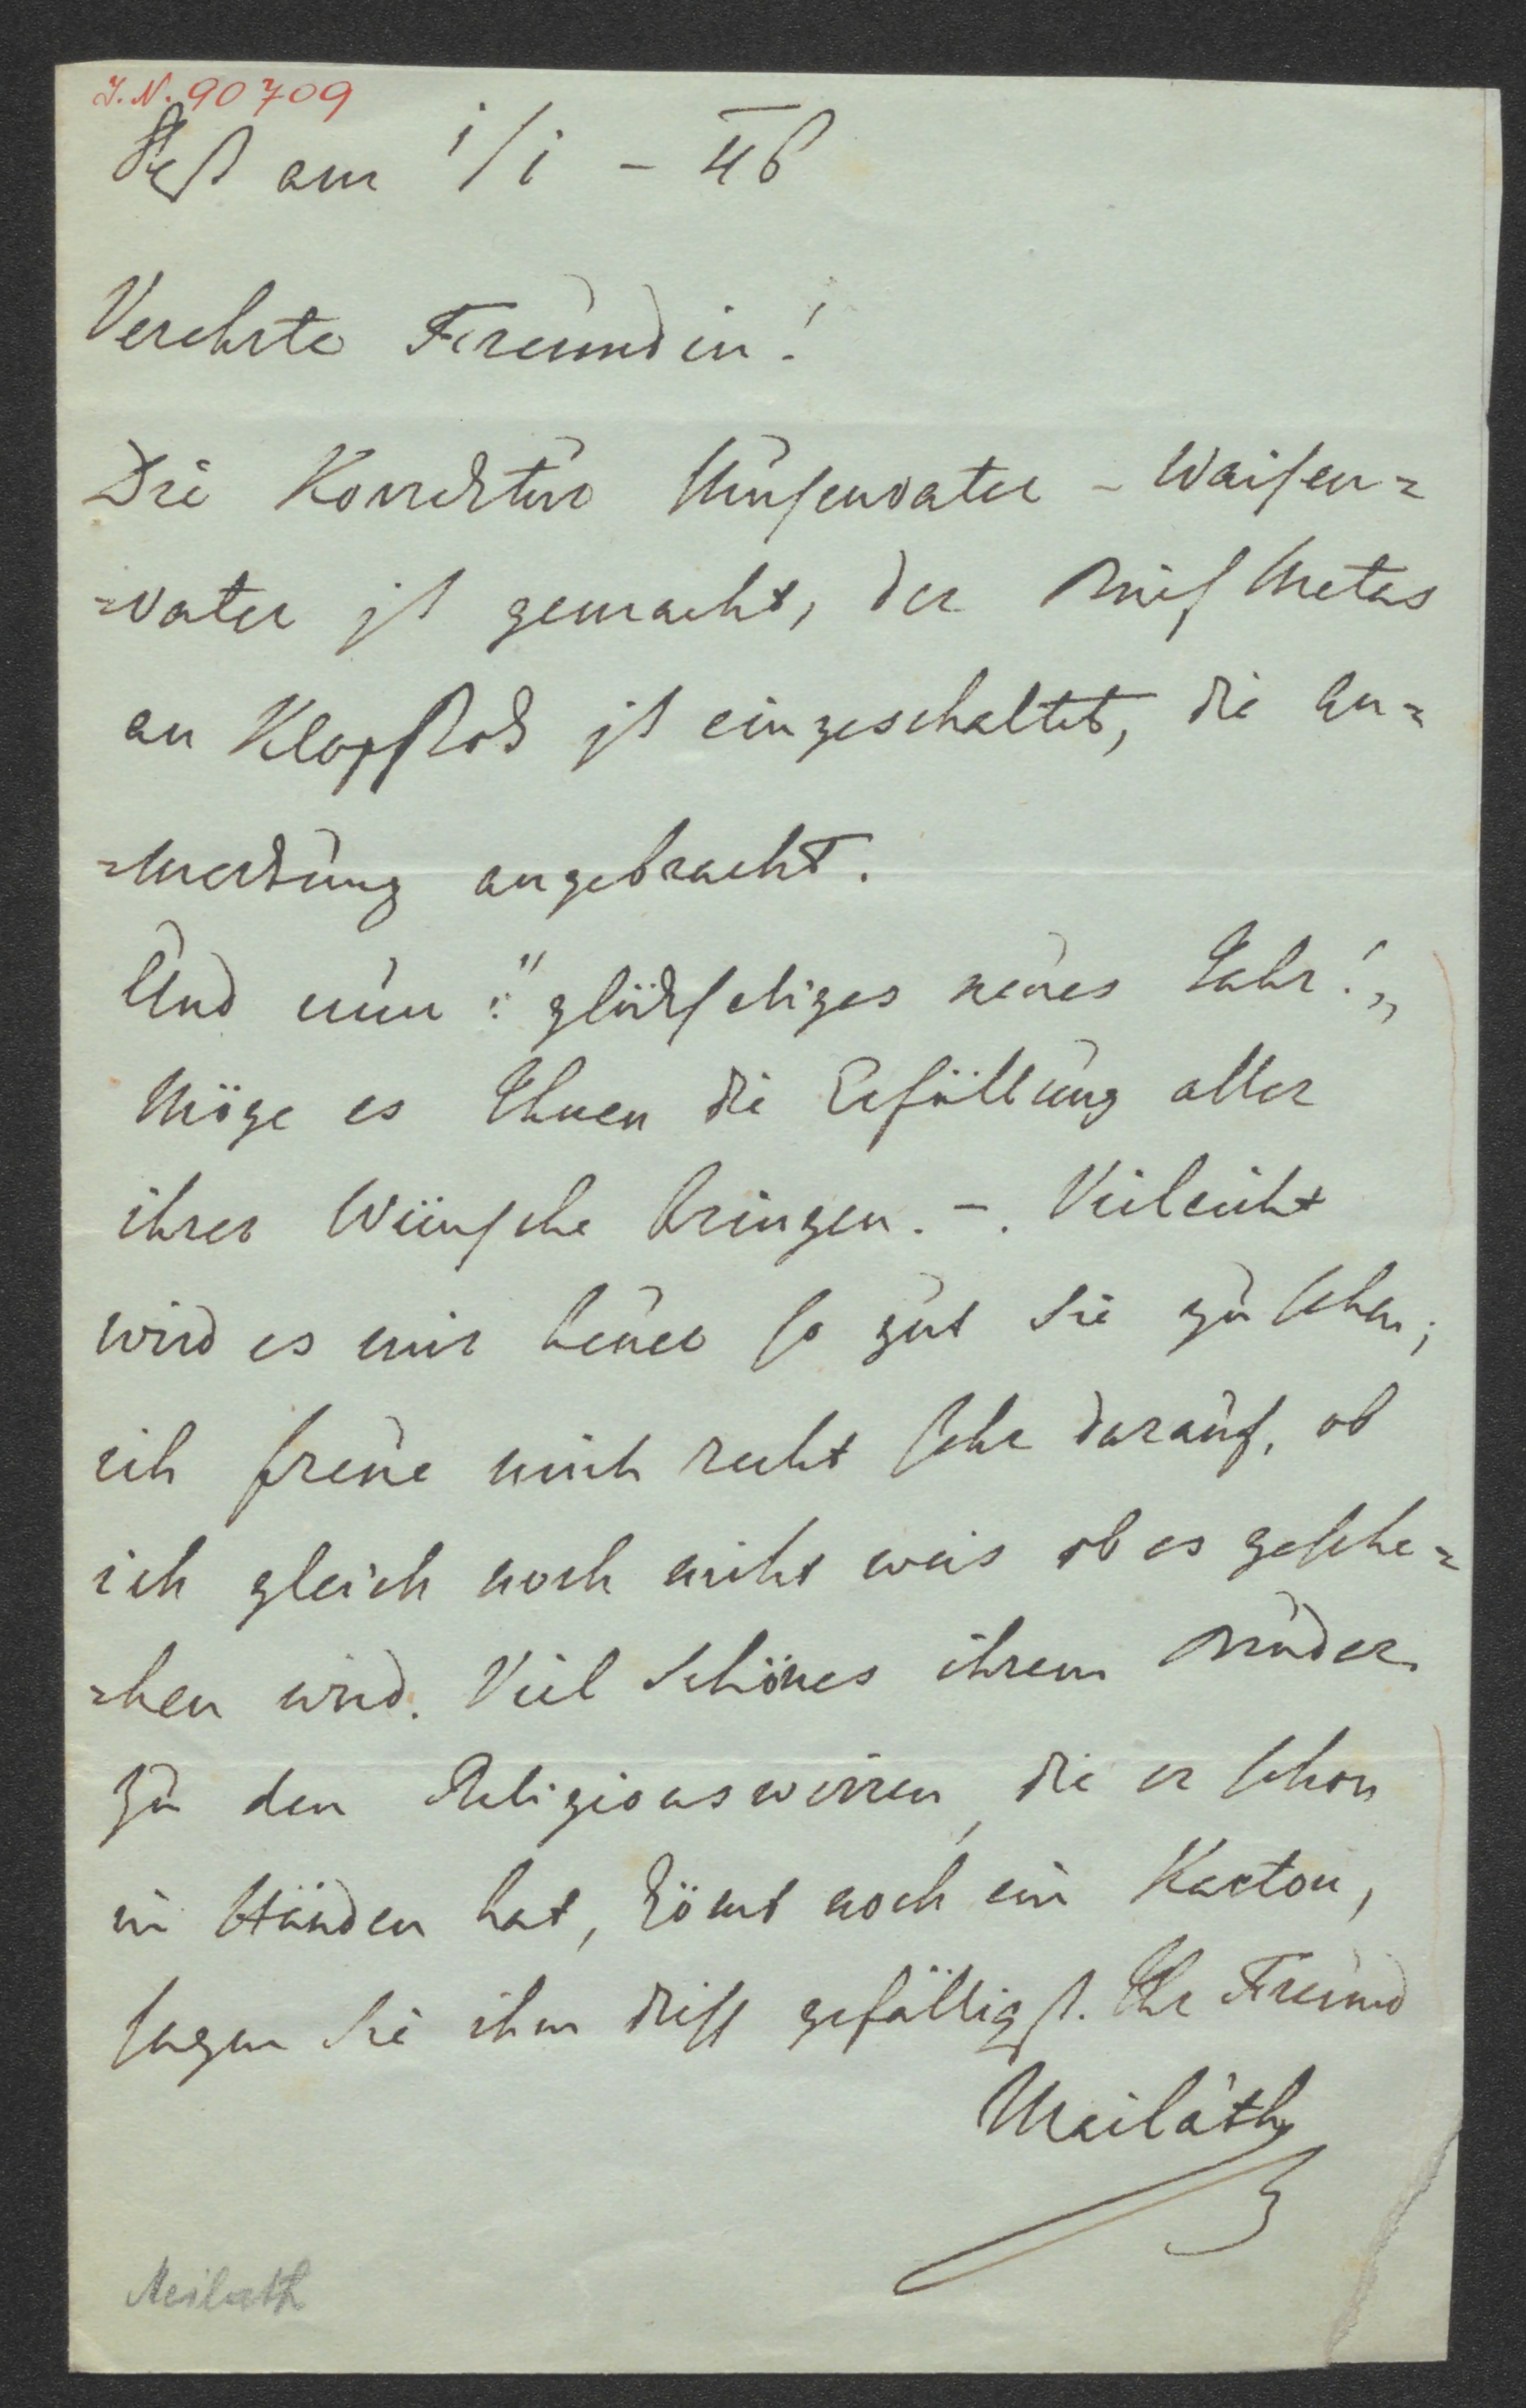 I.N. 90709
Pest am 1/1 – 46
Verehrte Freundin!
Die Korrektur Musenvater – Waisen=
=vater ist gemacht, der Brief Metas
an Klopstok ist eingeschaltet, die An=
=merkung angebracht.
Und nun: "glükseliges neues Jahr!„
Möge es Ihnen die Erfüllung aller
ihrer Wünsche bringen. –. Vieleicht
wird es mir heuer so gut Sie zu sehen;
ich freue mich recht sehr darauf, ob
ich gleich noch nicht weis ob es gesche=
=hen wird. Viel Schönes ihrem Bruder
Zu den Religionswirren, die er schon
in Händen hat, kömt noch ein Karton,
sagen Sie ihm diess gefälligst. Ihr Freund
Mailáth
Meilath